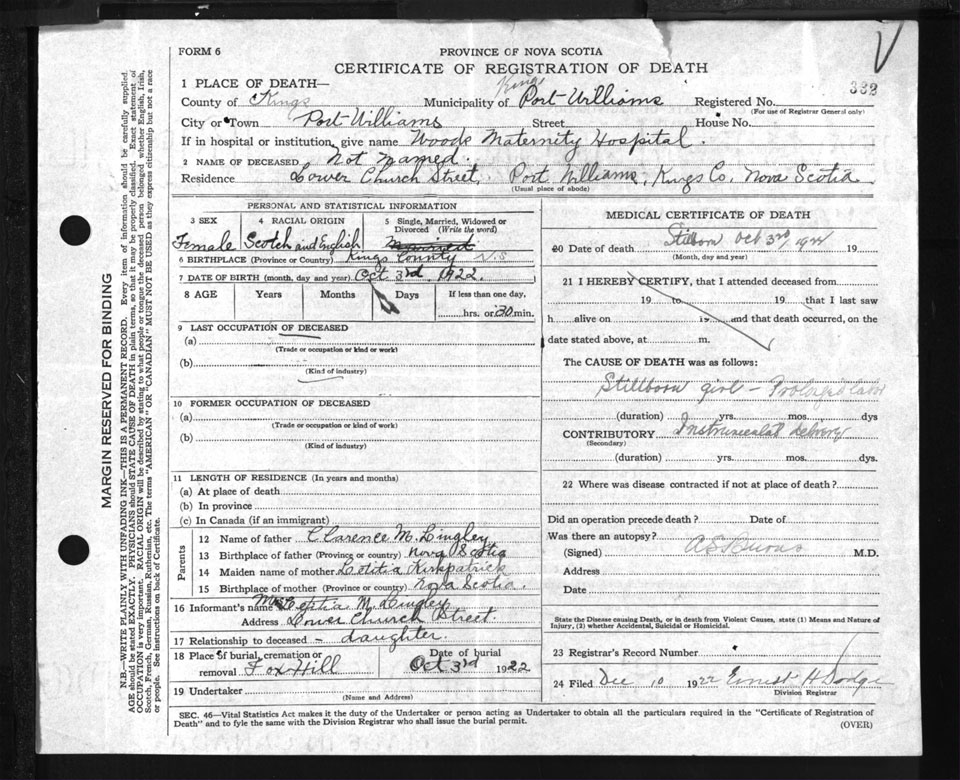 FORM 6
PROVINCE OF NOVA SCOTIA
CERTIFICATE OF REGISTRATION OF DEATH
1 PLACE OF DEATH—
Kings
332
County of Kings Municipality of Port Williams Registered No.
(For use of Registrar General only)
City or Town Port Williams Street House No.
If in hospital or institution, give name Woods Maternity Hospital.
2 NAME OF DECEASED Not Named.
Residence Lower Church Street, Port Williams, Kings Co, Nova Scotia
(Usual place of abode)
MARGIN RESERVED FOR BINDING
N.B.—WRITE PLAINLY WITH UNFADING INK—THIS IS A PERMANENT RECORD. Every item of information should be carefully supplied.
AGE should be stated EXACTLY. PHYSICIANS should STATE CAUSE OF DEATH in plain terms, so that it may be properly classified. Exact statement of
OCCUPATION is very important. RACIAL ORIGIN will be described by stating to what people or tongue the deceased person belonged whether English, Irish,
Scotch, French, German, Russian, Ruthenian, etc. The terms "AMERICAN" OR "CANADIAN" MUST NOT BE USED as they express citizenship but not a race
or people. See instructions on back of Certificate.
PERSONAL AND STATISTICAL INFORMATION
3 SEX 4 RACIAL ORIGIN 5 Single, Married, Widowed or
Divorced (Write the word)
Female Scotch and English Married
6 BIRTHPLACE (Province or Country) Kings County N.S
7 DATE OF BIRTH (month, day and year) Oct 3rd. 1922.
8 AGE Years Months Days If less than one day,
hrs. or 30 min.
9 LAST OCCUPATION OF DECEASED
(a)
(Trade or occupation or kind or work)
(b)
(Kind of industry)
10 FORMER OCCUPATION OF DECEASED
(a)
(Trade or occupation or kind of work)
(b)
(Kind of industry)
11 LENGTH OF RESIDENCE (In years and months)
(a) At place of death
(b) In province
(c) In Canada (if an immigrant)
Parents
12 Name of father Clarence M. Lingley
13 Birthplace of father (Province or country) Nova Scotia
14 Maiden name of mother Letitia Kirkpatrick
15 Birthplace of mother (Province or country) Nova Scotia.
16 Informant's name Mrs Letitia M. Lingley
Address Lower Church Street.
17 Relationship to deceased – daughter.
18 Place of burial, cremation or Date of burial
removal Fox Hill Oct 3rd 1922
19 Undertaker
(Name and Address)
MEDICAL CERTIFICATE OF DEATH
20 Date of death Stillborn Oct 3rd, 1922 19
(Month, day and year)
21 I HEREBY CERTIFY, that I attended deceased from
19 to 19 that I last saw
h alive on is and that death occurred, on the
date stated above, at m.
The CAUSE OF DEATH was as follows:
Stillborn girl – Prolonged labor
(duration) yrs. mos. dys
CONTRIBUTORY Instrumental delivery
(Secondary)
(duration) yrs. mos. dys.
22 Where was disease contracted if not at place of death?
Did an operation precede death? Date of
Was there an autopsy?
(Signed) A S Burns M.D.
Address
Date
State the Disease causing Death, or in death from Violent Causes, state (1) Means and Nature of
Injury, (2) whether Accidental, Suicidal or Homicidal.
23 Registrar's Record Number
24 Filed Dec 10 1922 Ernest H Dodge
Division Registrar
SEC. 46—Vital Statistics Act makes it the duty of the Undertaker or person acting as Undertaker to obtain all the particulars required in the "Certificate of Registration of
Death" and to fyle the same with the Division Registrar who shall issue the burial permit.
(OVER)